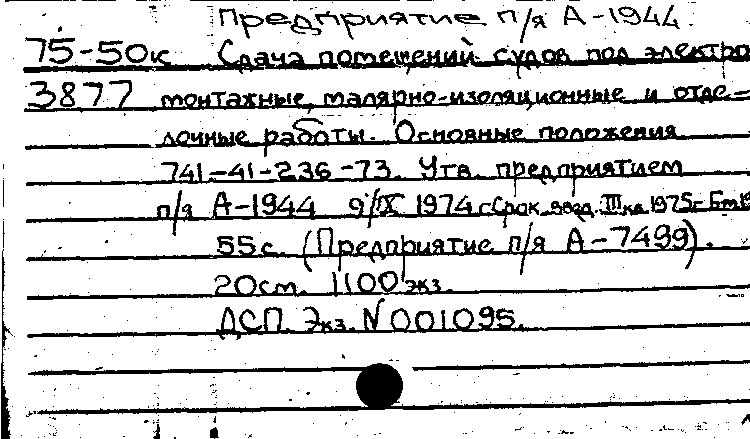 Предприятие п/я А-1944.
75-50к Сдача помещений судов под электро
3877 монтажные, малярно-изоляционные и отде=
лочные работы. Основные положения
741-41-236-73. Утв. предприятием
п/я А-1944 9/IX 1974 г. Срок введ. III кв. 1975г.
55с. (Предприятие п/я А-7499).
20см. 1100 экз.
ДСП. Экз. N 001095.